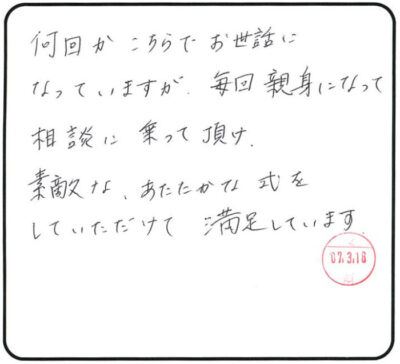 何回か こちらで お世話に
なっていますが、毎回 親身になって
相談に 乗って 頂け、
素敵な、あたたかな 式を
していただけて 満足しています。
07.3.16